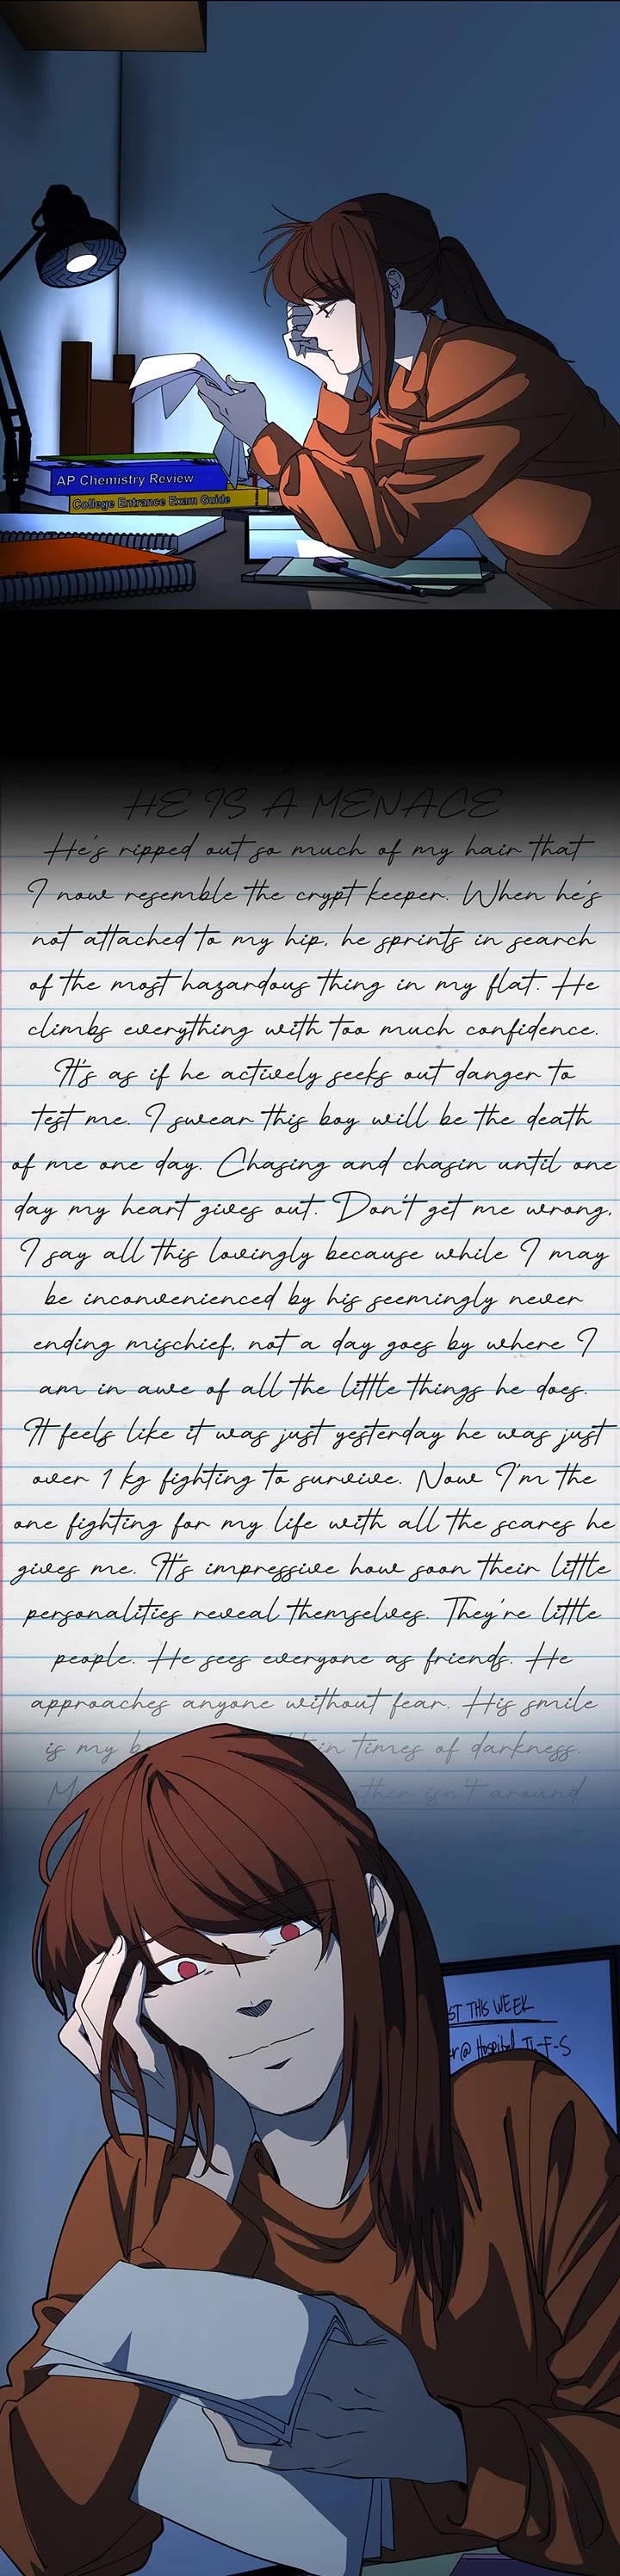 AP Chemistry Review
College Entrance Exam Guide
HE IS A MENACE
He's ripped out so much of my hair that
I now resemble the crypt keeper. When he's
not attached to my hip, he sprints in search
of the most hazardous thing in my flat. He
climbs everything with too much confidence.
It's as if he actively seeks out danger to
test me. I swear this boy will be the death
of me one day. Chasing and chasin until one
day my heart gives out. Don't get me wrong,
I say all this lovingly because while I may
be inconvenienced by his seemingly never
ending mischief, not a day goes by where I
am in awe of all the little things he does.
It feels like it was just yesterday he was just
over 1 kg fighting to survive. Now I'm the
one fighting for my life with all the scares he
gives me. It's impressive how soon their little
personalities reveal themselves. They're little
people. He sees everyone as friends. He
approaches anyone without fear. His smile
is my in times of darkness.
isn't around
THIS WEEK
@ Hospital